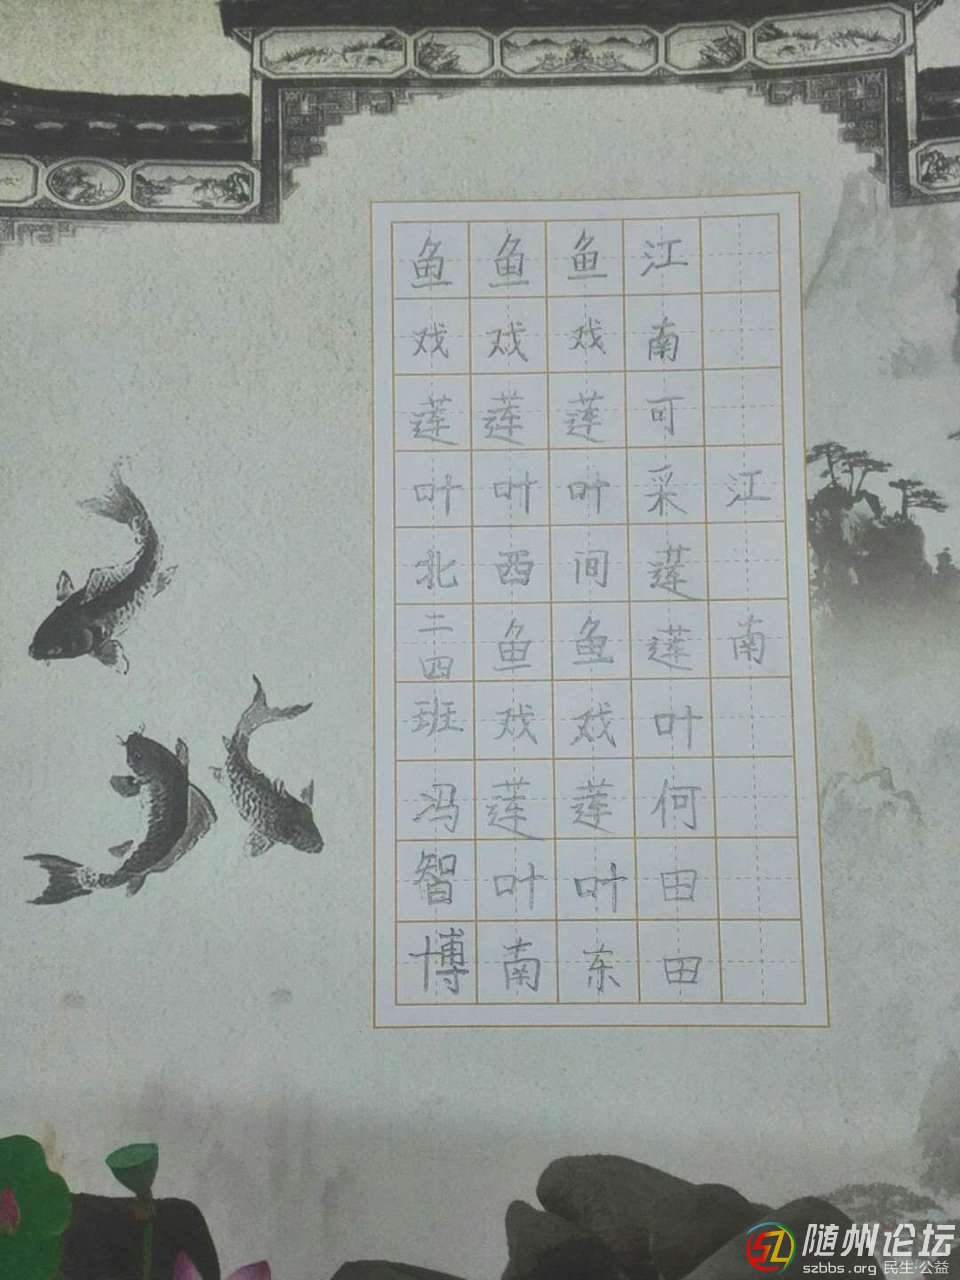 江南
江南可采莲莲叶何田田
鱼戏莲叶间鱼戏莲叶东
鱼戏莲叶西鱼戏莲叶南
鱼戏莲叶北二四班冯智博
随州论坛
szbbs.org 民生·公益